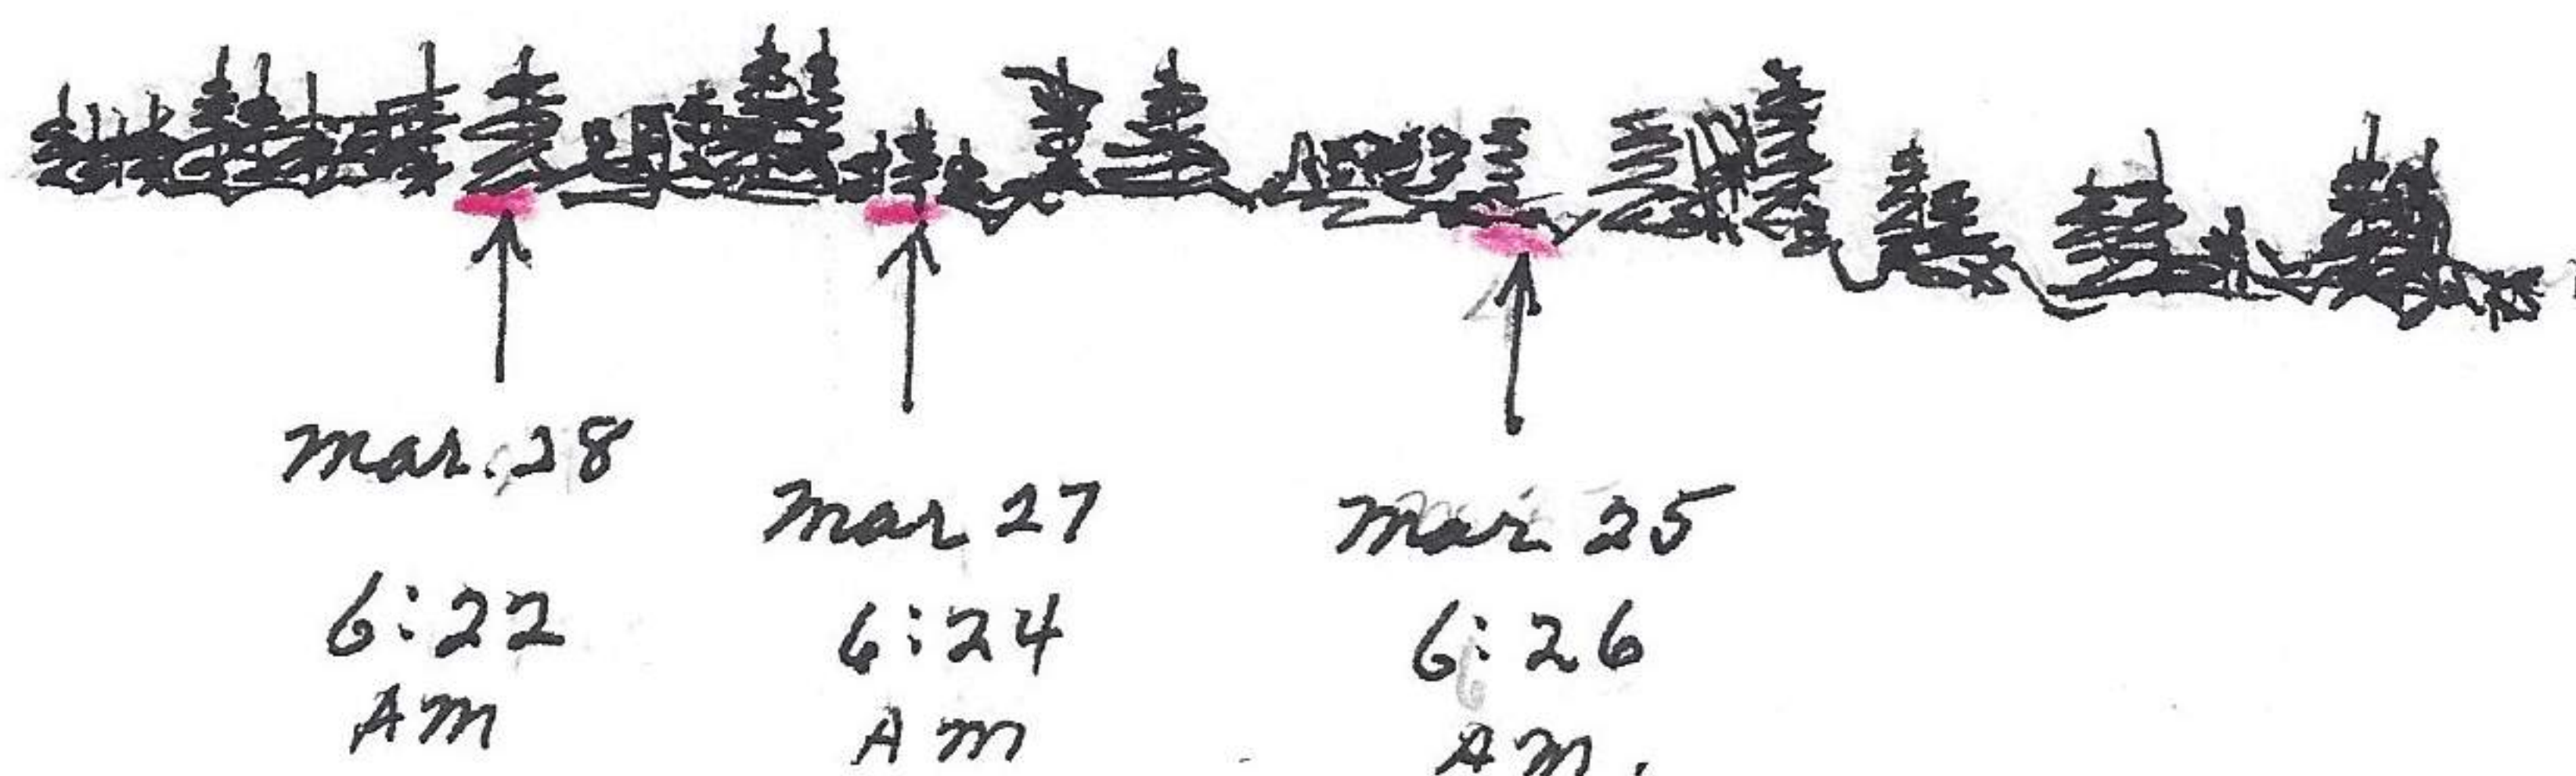 Mar. 28
6:22
AM
Mar 27
6:24
AM
Mar. 25
6:26
AM.